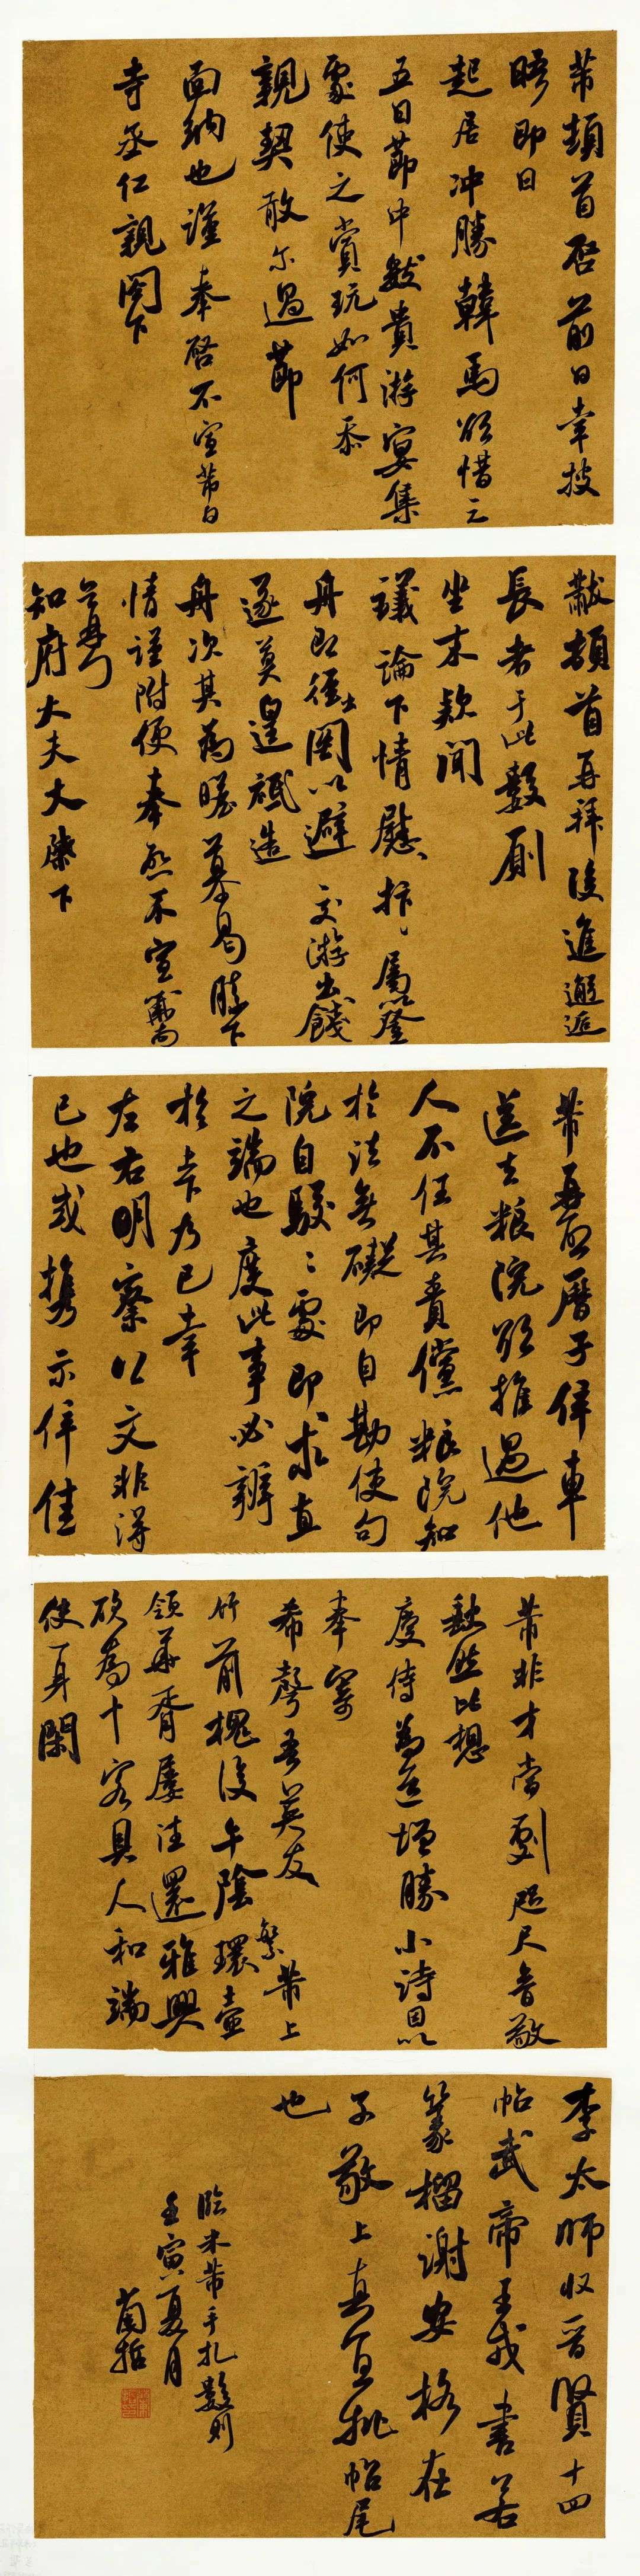 芾頓首啓前日幸披
晤即日
起居冲勝韓馬欲借三
五日節中數貴游宴集
處使之賞玩如何忝
親契敢尔過節
面納也謹奉啓不宣芾白
寺丞仁親閣下
黻頓首再拜後進邂逅
長者于此數厠
坐末款聞
議論下情慰抃屬以登
舟即徑出関以避交游出餞
遂莫遑祗造
舟次其為瞻慕曷勝下
情謹附便奉啓不宣黻頓首
知府大夫大棨下
芾再啓曆子倅車
送去粮院欲推過他
人不任其責儻粮院知
於法無礙即自勘使句
院自駮駮處即求直
之端也度此事必辨
於卞下乃已幸
左右明察以文非得
已也或擕示倅佳
芾非才當劇咫尺音敬
缺然比想
慶侍為道增勝小詩因以
奉寄
希聲吾英友 芾上
竹前槐後午陰環壺
領華胥屡往還雅興
欲為十客具人和端
使一身閑
李太師收晋賢十四
帖武帝王戎書若
篆榴謝安格在
子敬上真宜批帖尾
也
臨米芾手札數則
壬寅夏月